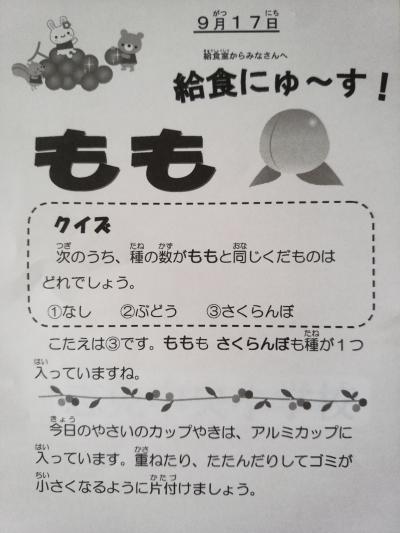 9月17日
給食室からみなさんへ
給食にゅ～す！
もも
クイズ
次のうち、種の数がももと同じくだものは
どれでしょう。
①なし ②ぶどう ③さくらんぼ
こたえは③です。ももも さくらんぼも種が１つ
入っていますね。
今日のやさいのカップやきは、アルミカップに
入っています。重ねたり、たたんだりしてゴミが
小さくなるように片付けましょう。